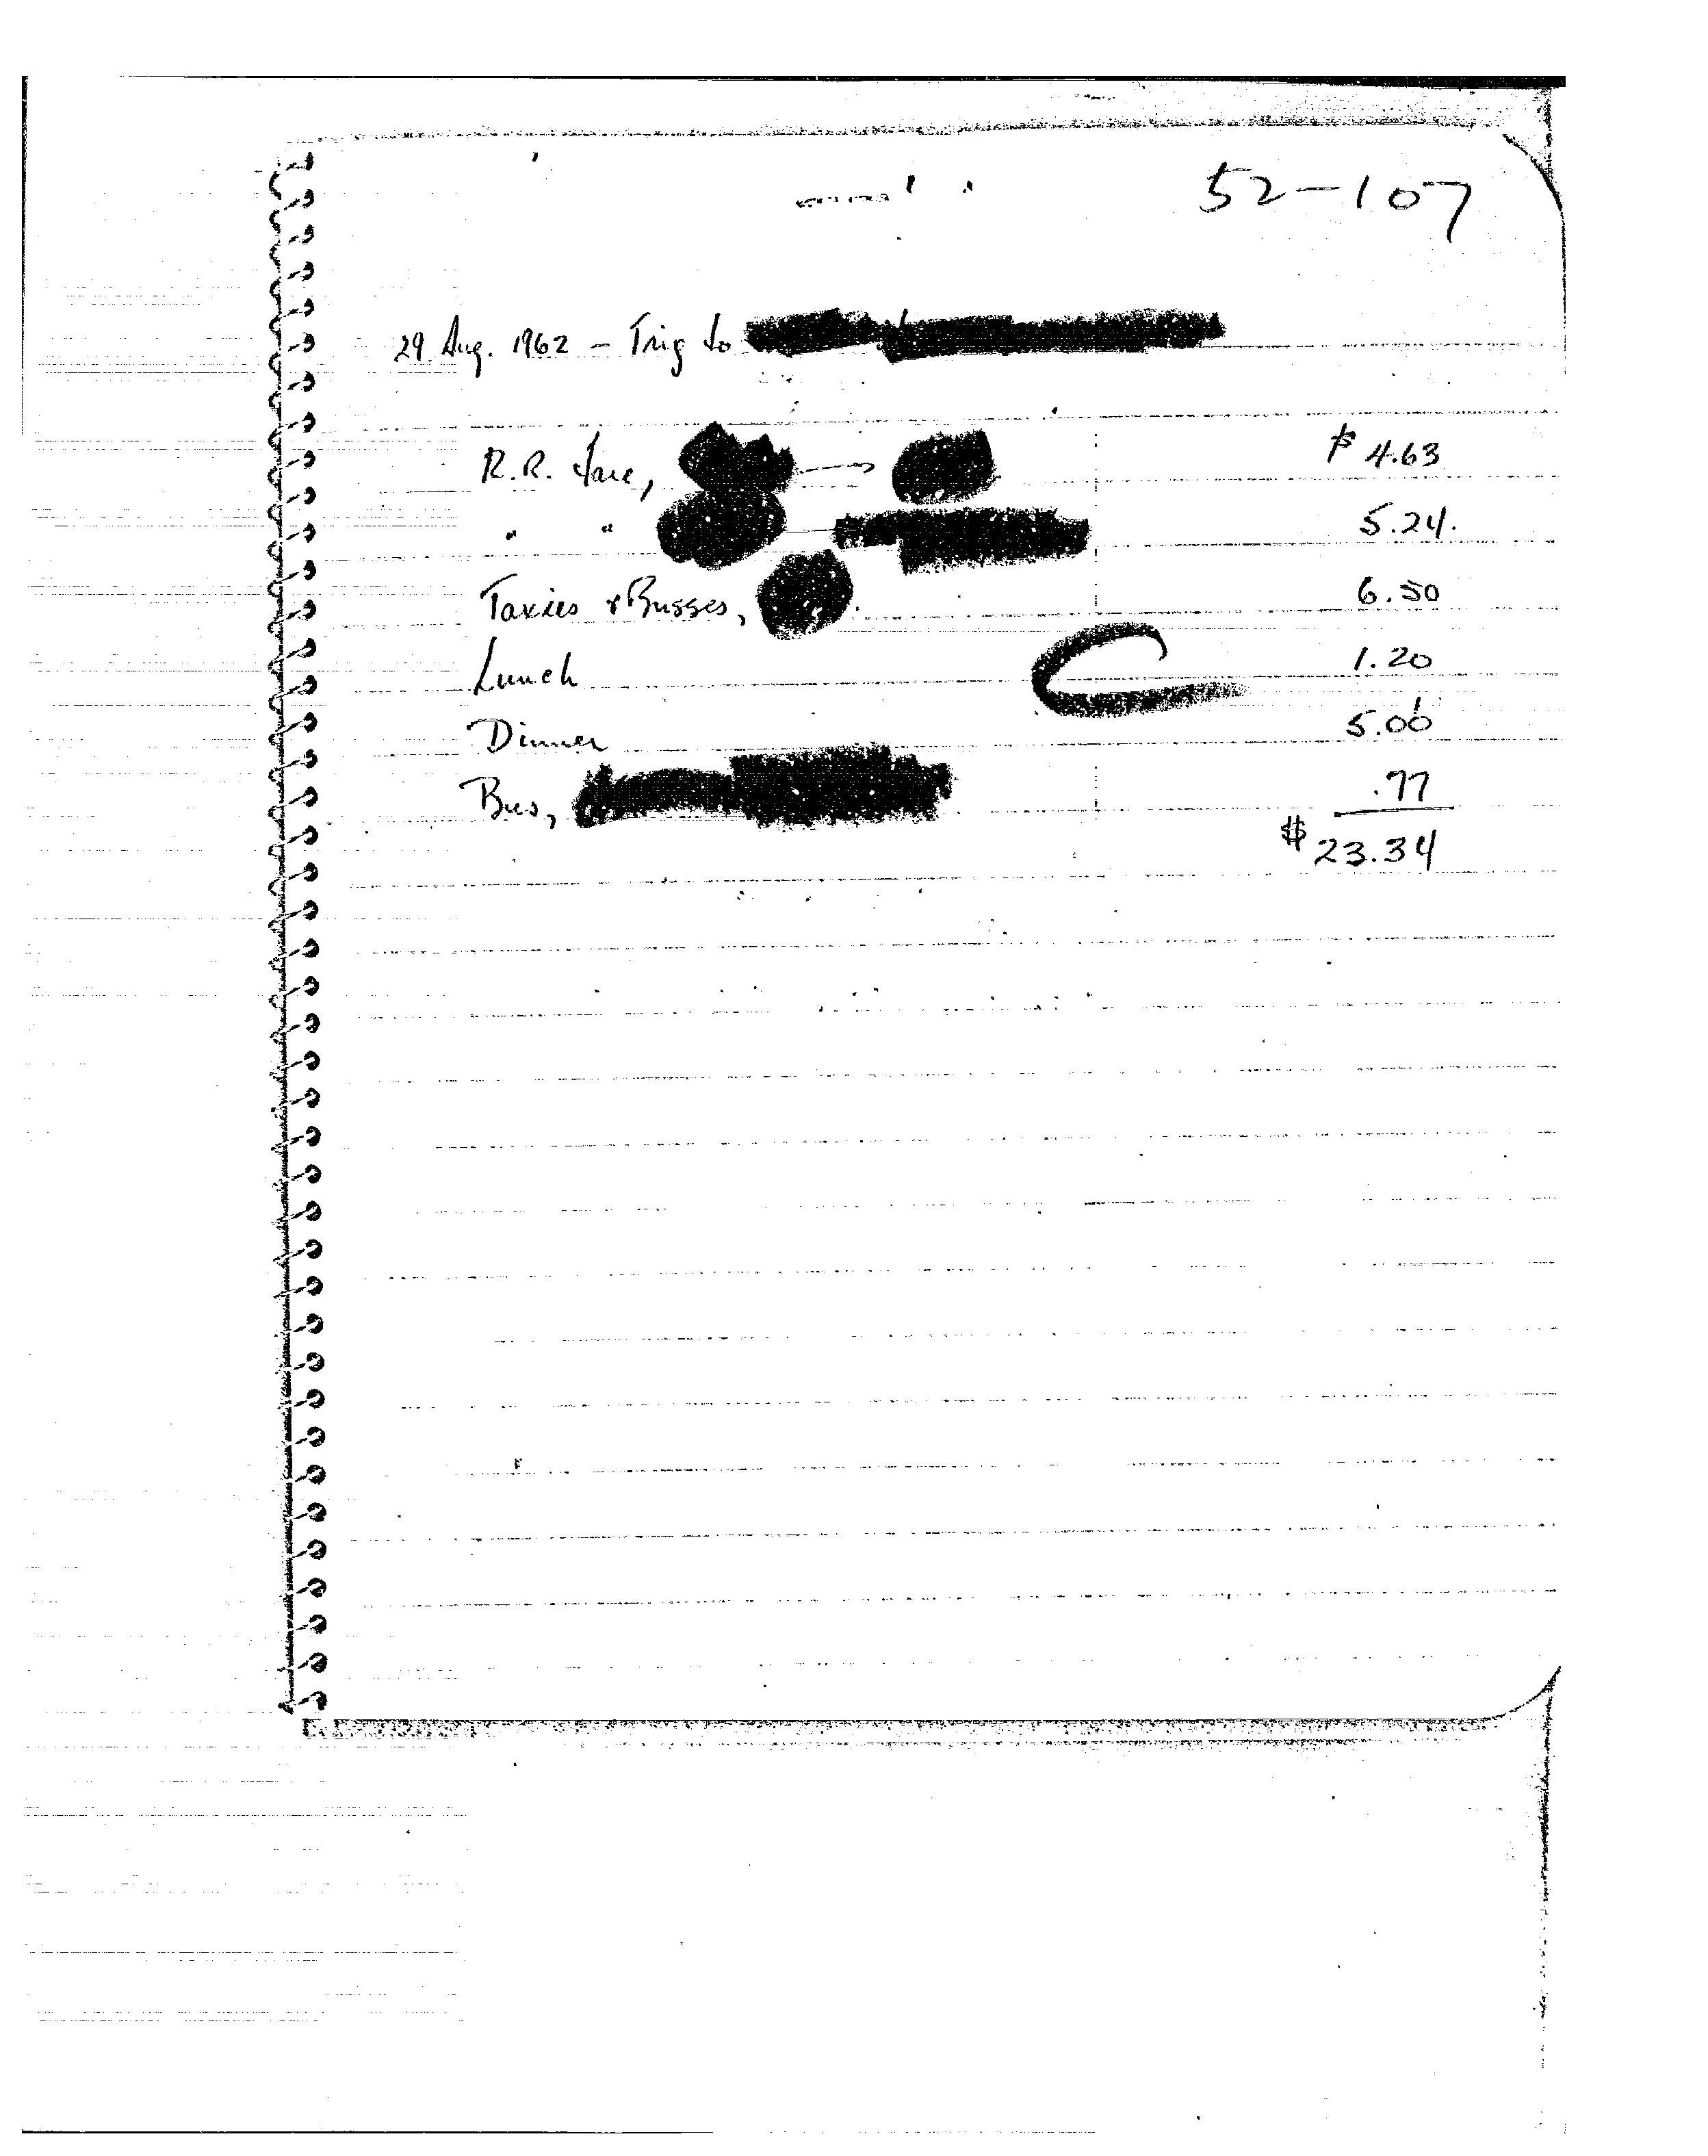 52-107
29 Aug. 1962 - Trip to
R.R. Fare, $ 4.63
" " 5.24.
Taxies & Busses, 6.50
Lunch 1.20
Dinner 5.00
Bus, .77
$ 23.34